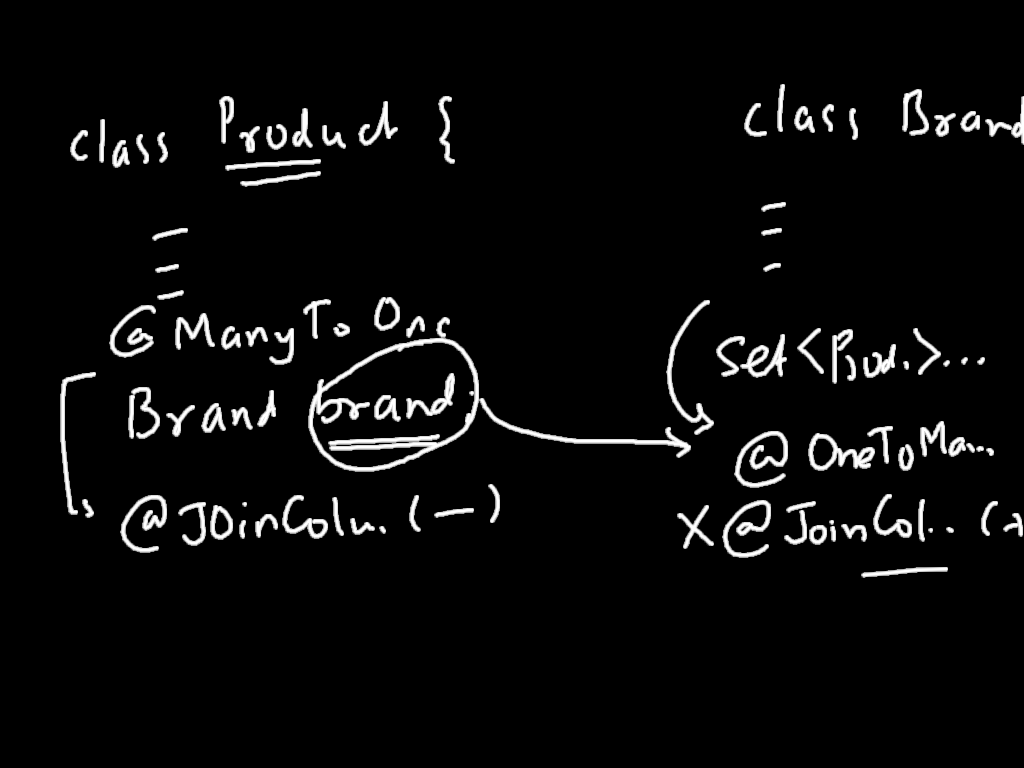 class Product {
@ManyToOne
Brand brand
@JOinColu. (—)
class Brand
Set<Prod.>...
@OneToMa...
X @JoinCol.. (